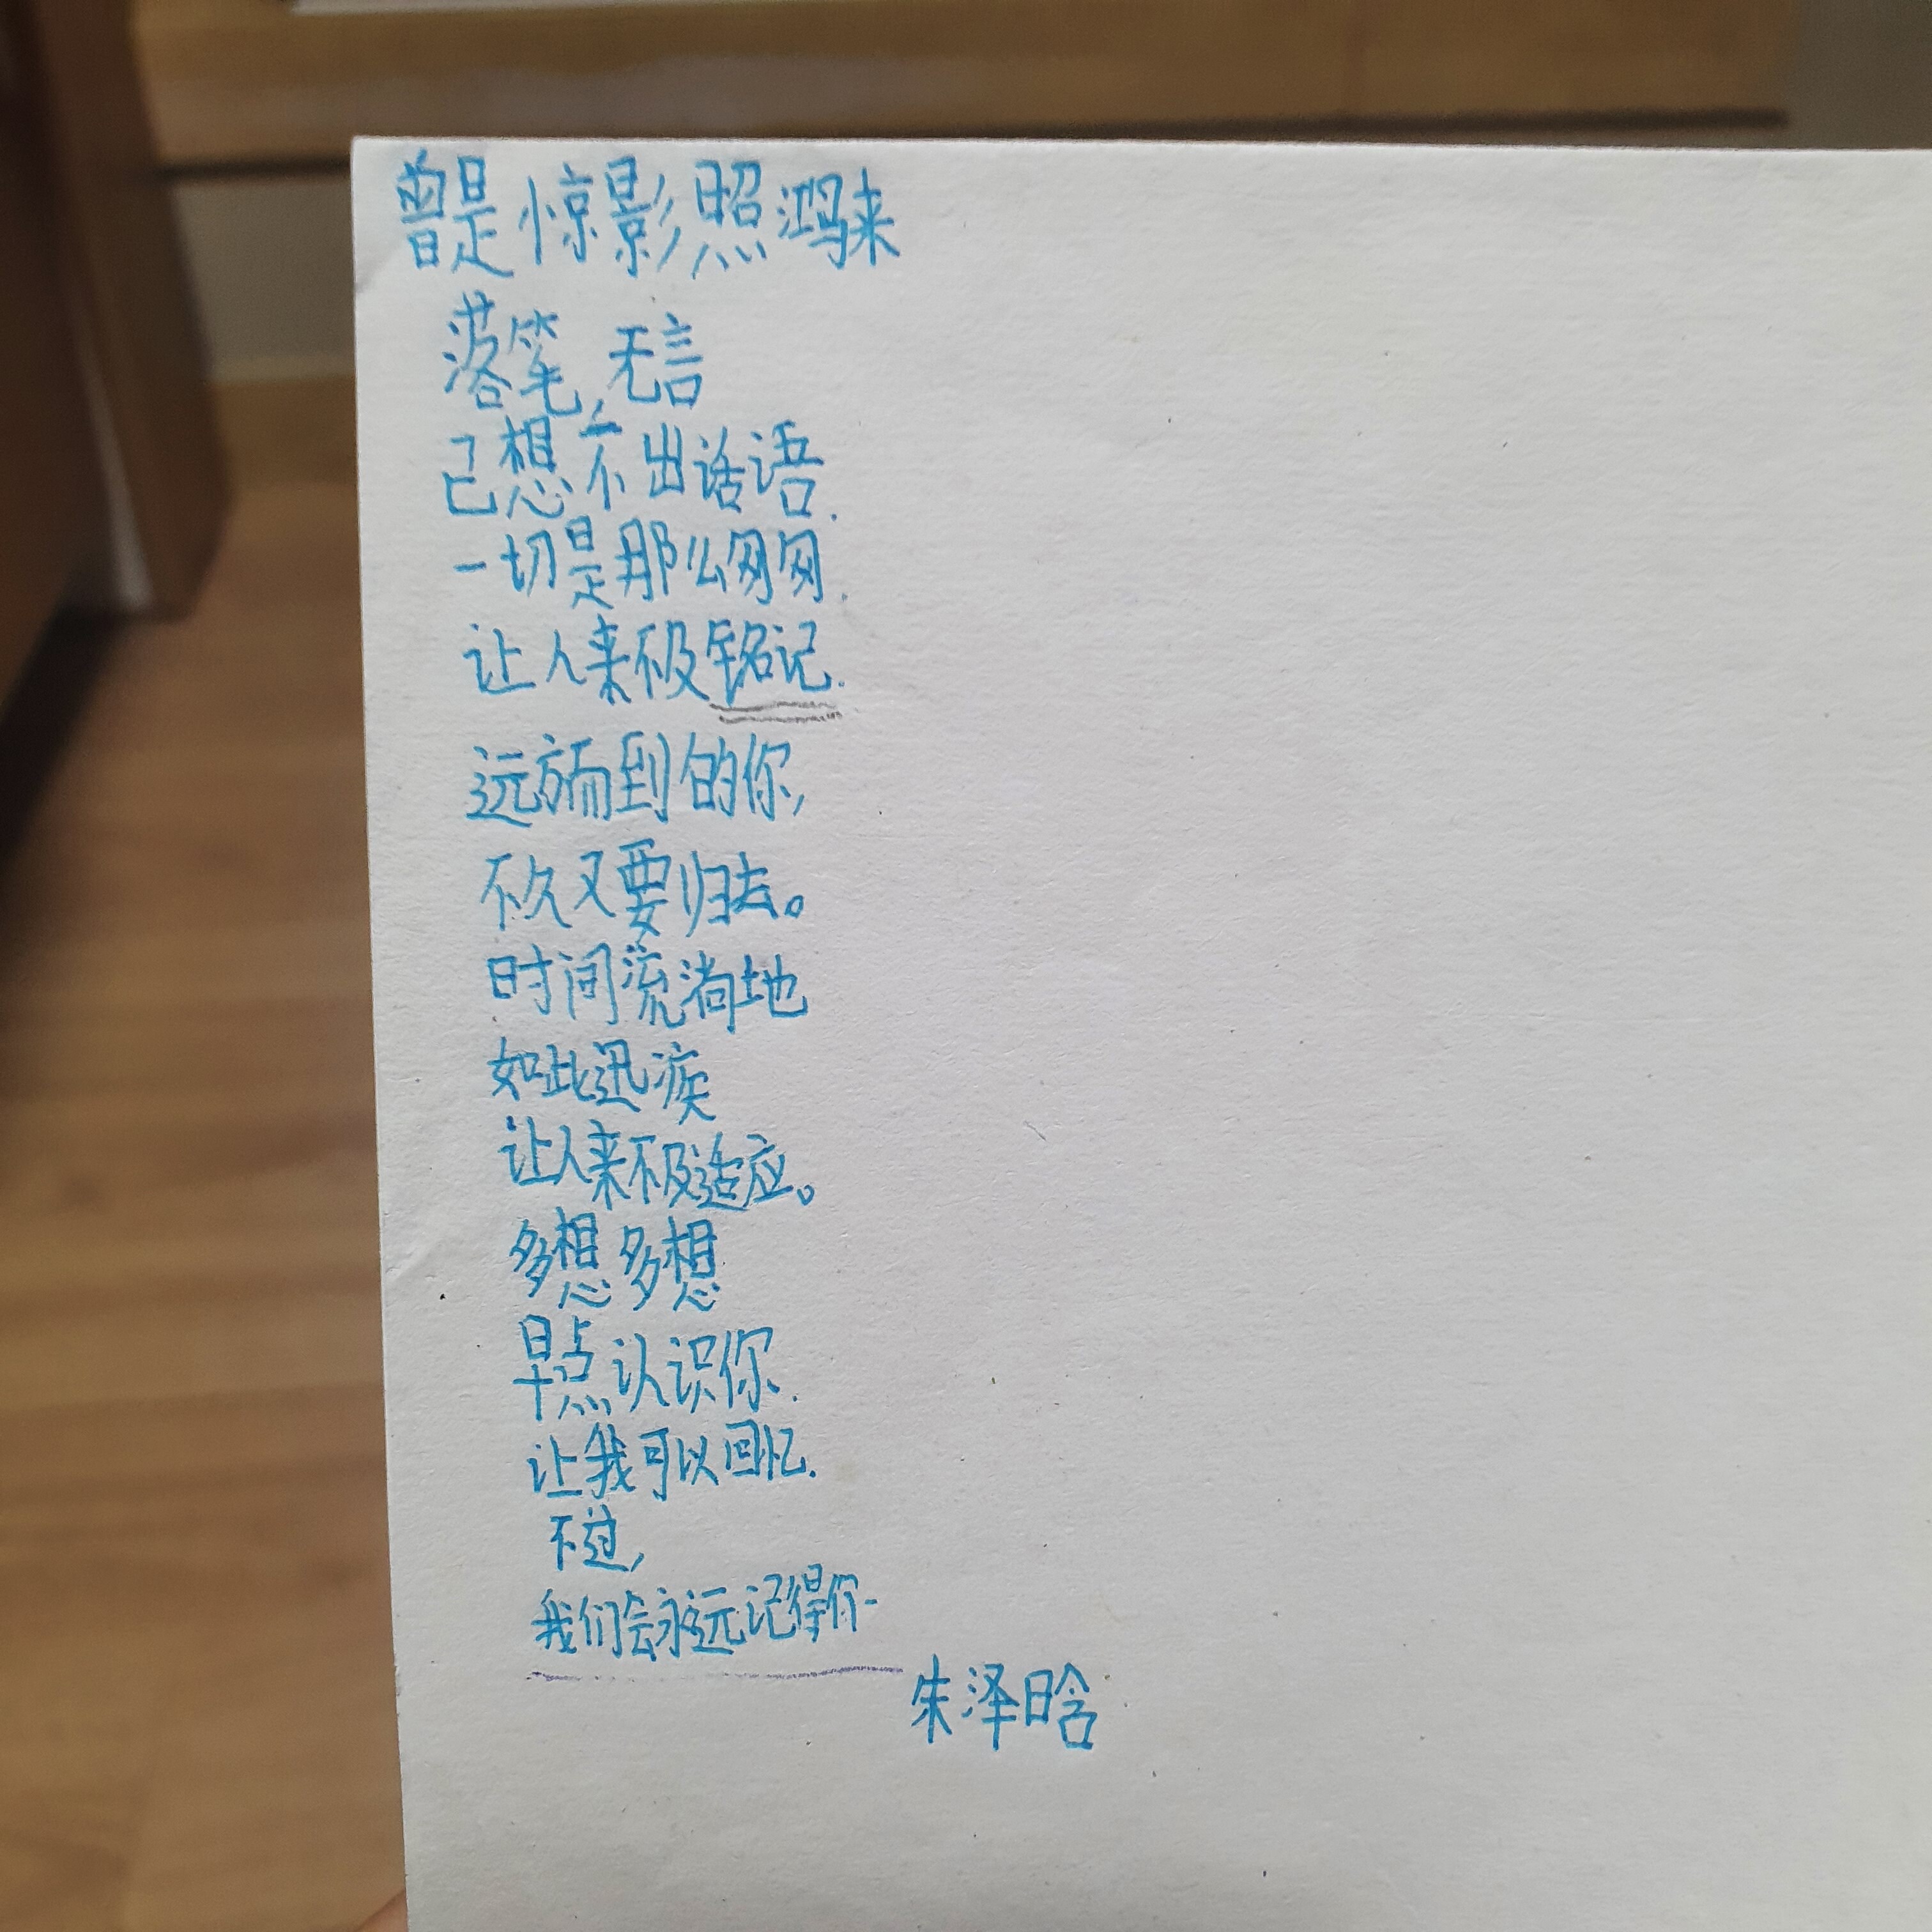 曾是惊影照鸿来
落笔,无言
已想不出话语.
一切是那么匆匆.
让人来不及铭记.
远方而到的你,
不久又要归去。
时间流淌地
如此迅疾
让人来不及适应。
多想多想
早点认识你.
让我可以回忆.
不过,
我们会永远记得你-
朱泽晗